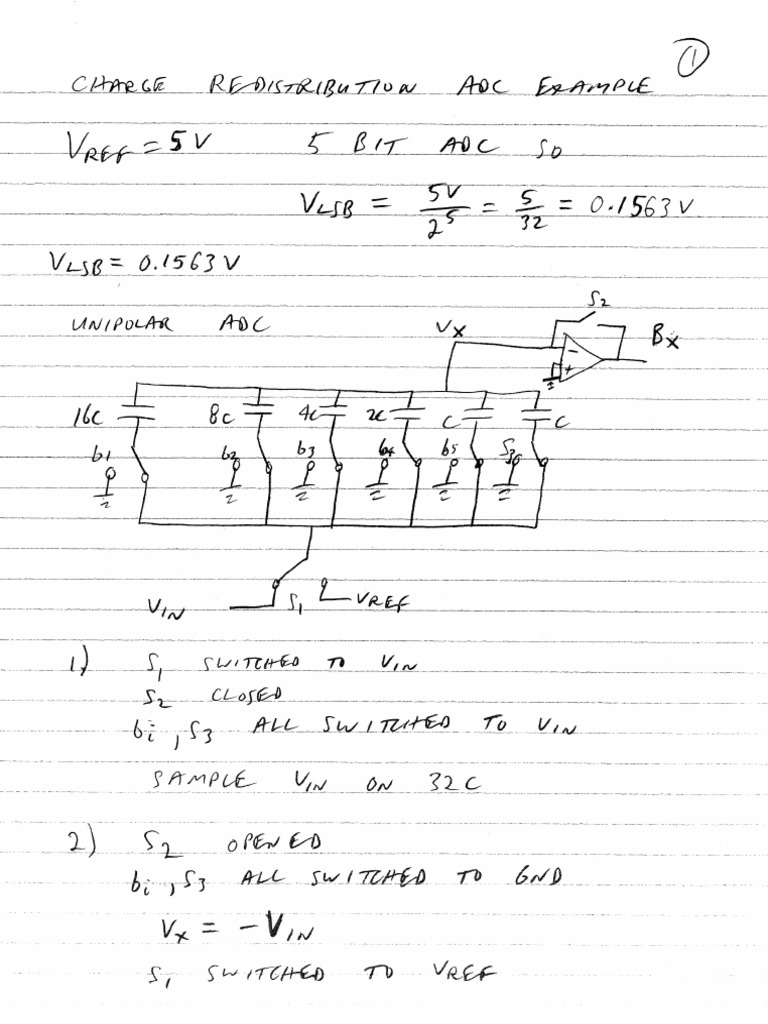 1
CHARGE REDISTRIBUTION ADC EXAMPLE
VREF = 5V 5 BIT ADC SO
VLSB = 5V/2^5 = 5/32 = 0.1563V
VLSB = 0.1563V
UNIPOLAR ADC
VX
S2
BX
-
+
16C 8C 4C 2C C C
b1 b2 b3 b4 b5 S3
VIN S1 VREF
1) S1 SWITCHED TO VIN
S2 CLOSED
bi, S3 ALL SWITCHED TO VIN
SAMPLE VIN ON 32C
2) S2 OPENED
bi, S3 ALL SWITCHED TO GND
VX = -VIN
S1 SWITCHED TO VREF